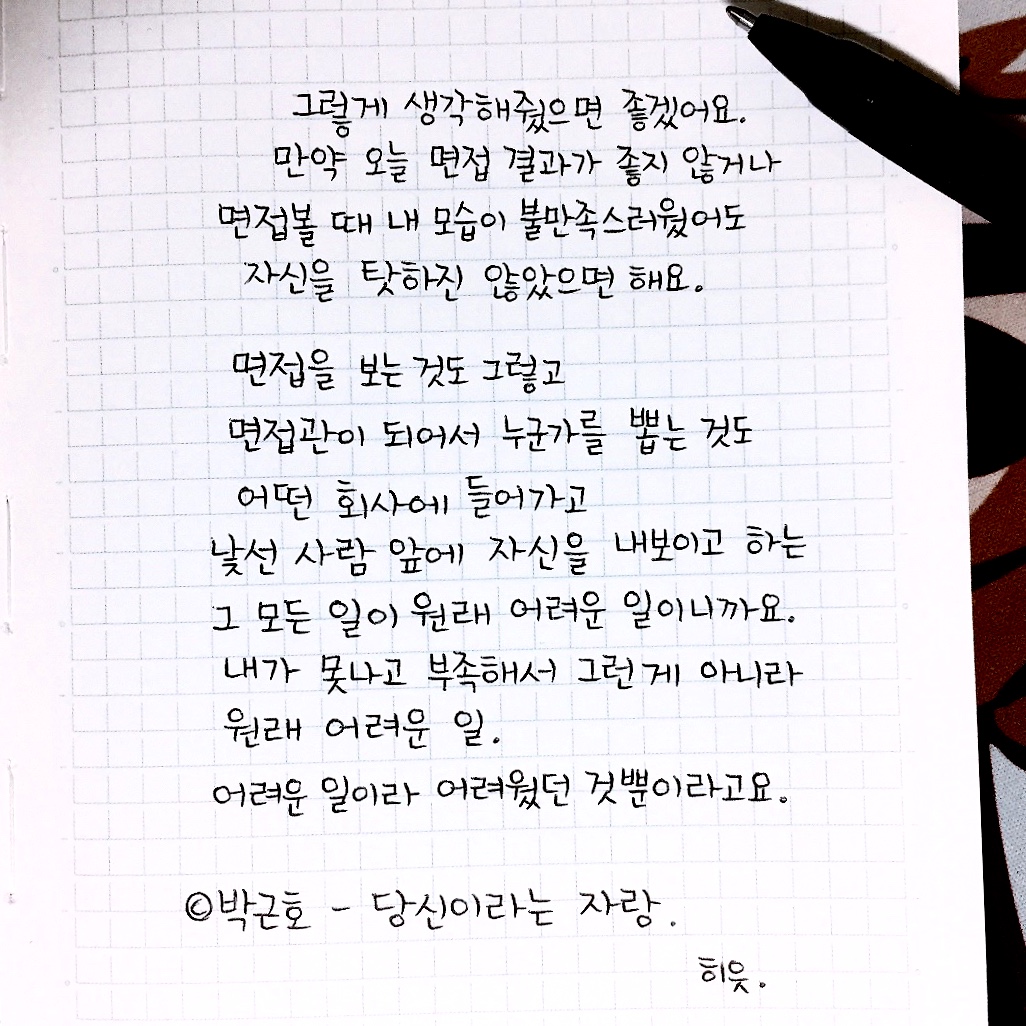 그렇게 생각해줬으면 좋겠어요.
만약 오늘 면접 결과가 좋지 않거나
면접볼 때 내 모습이 불만족스러웠어도
자신을 탓하진 않았으면 해요.
면접을 보는 것도 그렇고
면접관이 되어서 누군가를 뽑는 것도
어떤 회사에 들어가고
낯선 사람 앞에 자신을 내보이고 하는
그 모든 일이 원래 어려운 일이니까요.
내가 못나고 부족해서 그런게 아니라
원래 어려운 일.
어려운 일이라 어려웠던 것뿐이라고요.
©박근호 - 당신이라는 자랑.
히읏.